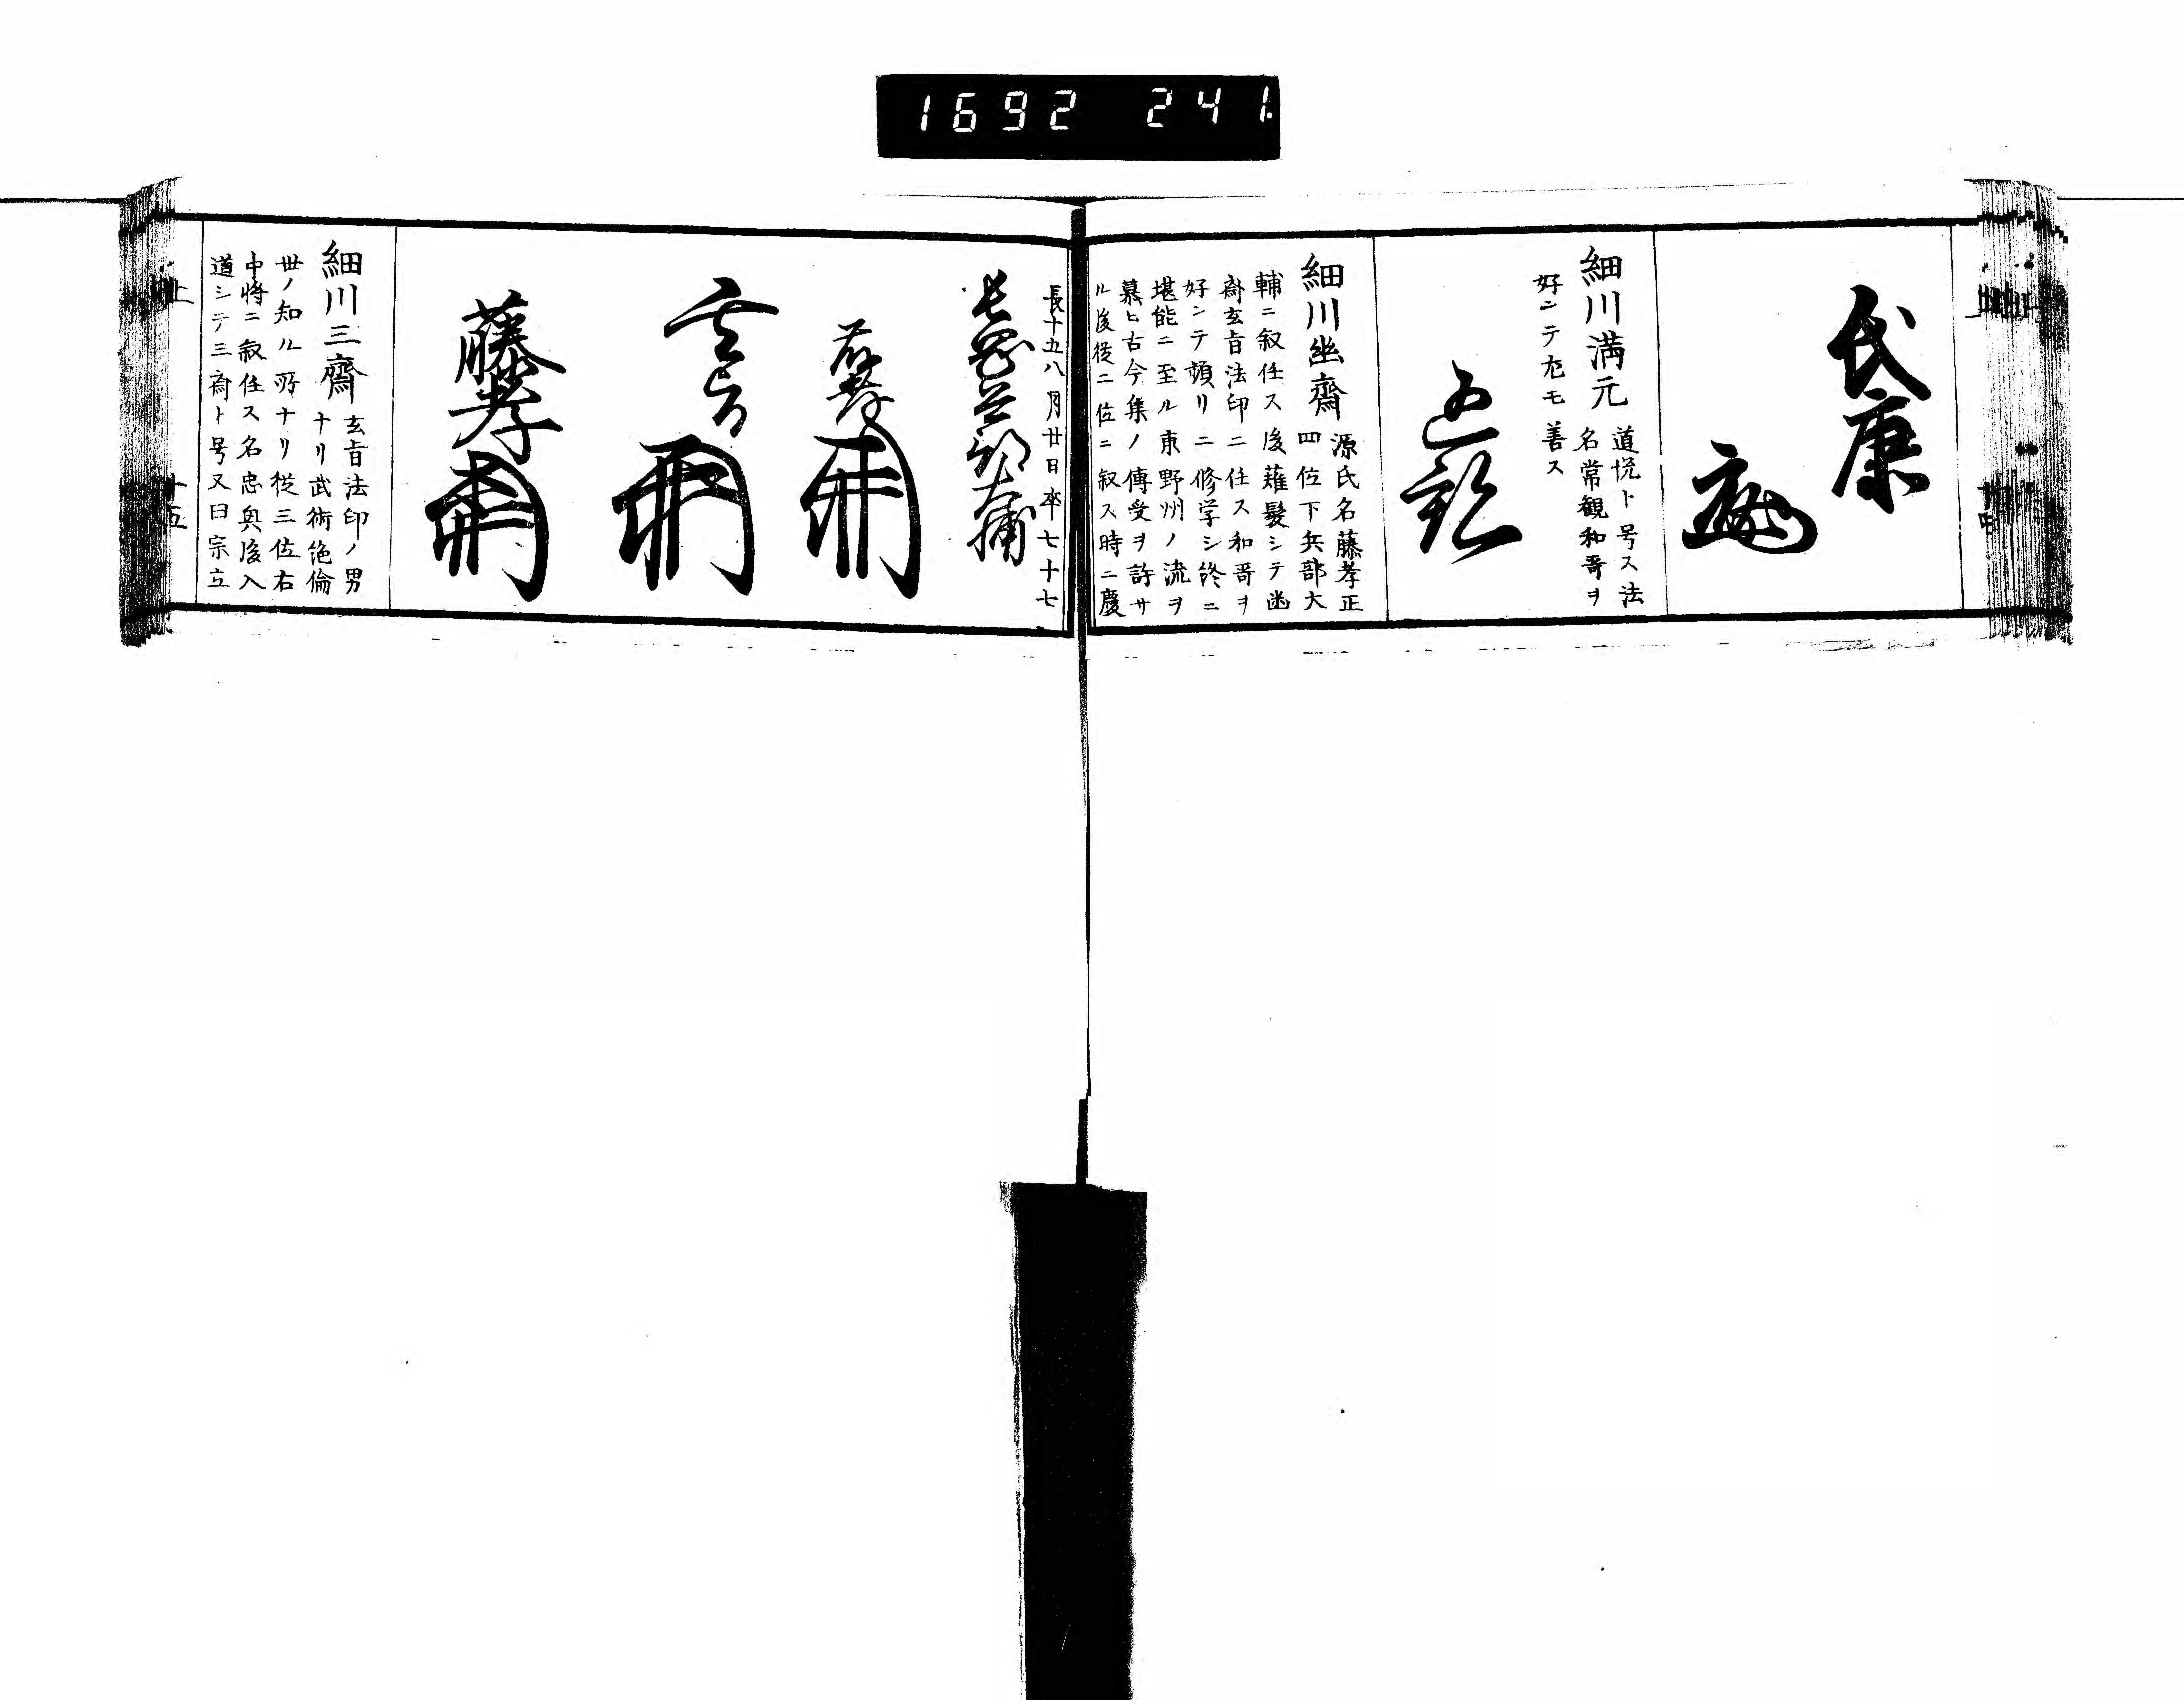 1692 241.
氏康
細川満元
道悦ト号ス法
名常観和哥ヲ
好ンテ尤モ善ス
細川幽齋
源氏名藤孝正
四位下兵部大
輔ニ叙任ス後薙髮シテ幽
齋玄旨法印ニ任ス和哥ヲ
好ンテ頻リニ修学シ終ニ
堪能ニ至ル東野州ノ流ヲ
慕ヒ古今集ノ傳受ヲ許サ
ル後従二位ニ叙ス時ニ慶
長十五八月廿日卒七十七
長岡兵部大輔
藤孝
玄旨
藤孝
細川三齋
玄旨法印ノ男
ナリ武術絶倫
世ノ知ル所ナリ従三位右
中将ニ叙任ス名忠興後入
道シテ三齋ト号又曰宗立
上
十五